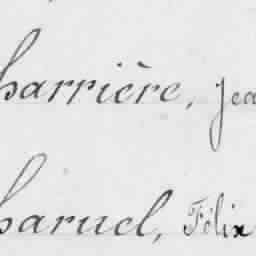 harrière, Jea
haruel, Félix